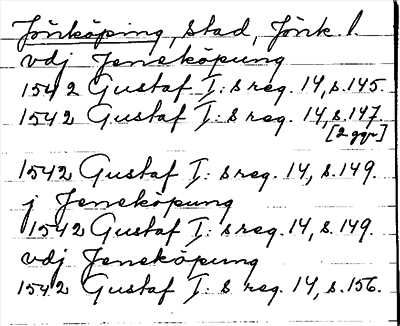 Jönköping, Stad, Jönk l.
vdj Jeneköpung
1542 Gustaf I:s reg. 14, s. 145.
1542 Gustaf I:s reg. 14, s. 147.
[2 ggr]
1542 Gustaf I:s reg. 14, s. 149.
j Jeneköpung
1542 Gustaf I:s reg. 14, s. 149.
vdj Jeneköpung
1542 Gustaf I:s reg. 14, s. 156.